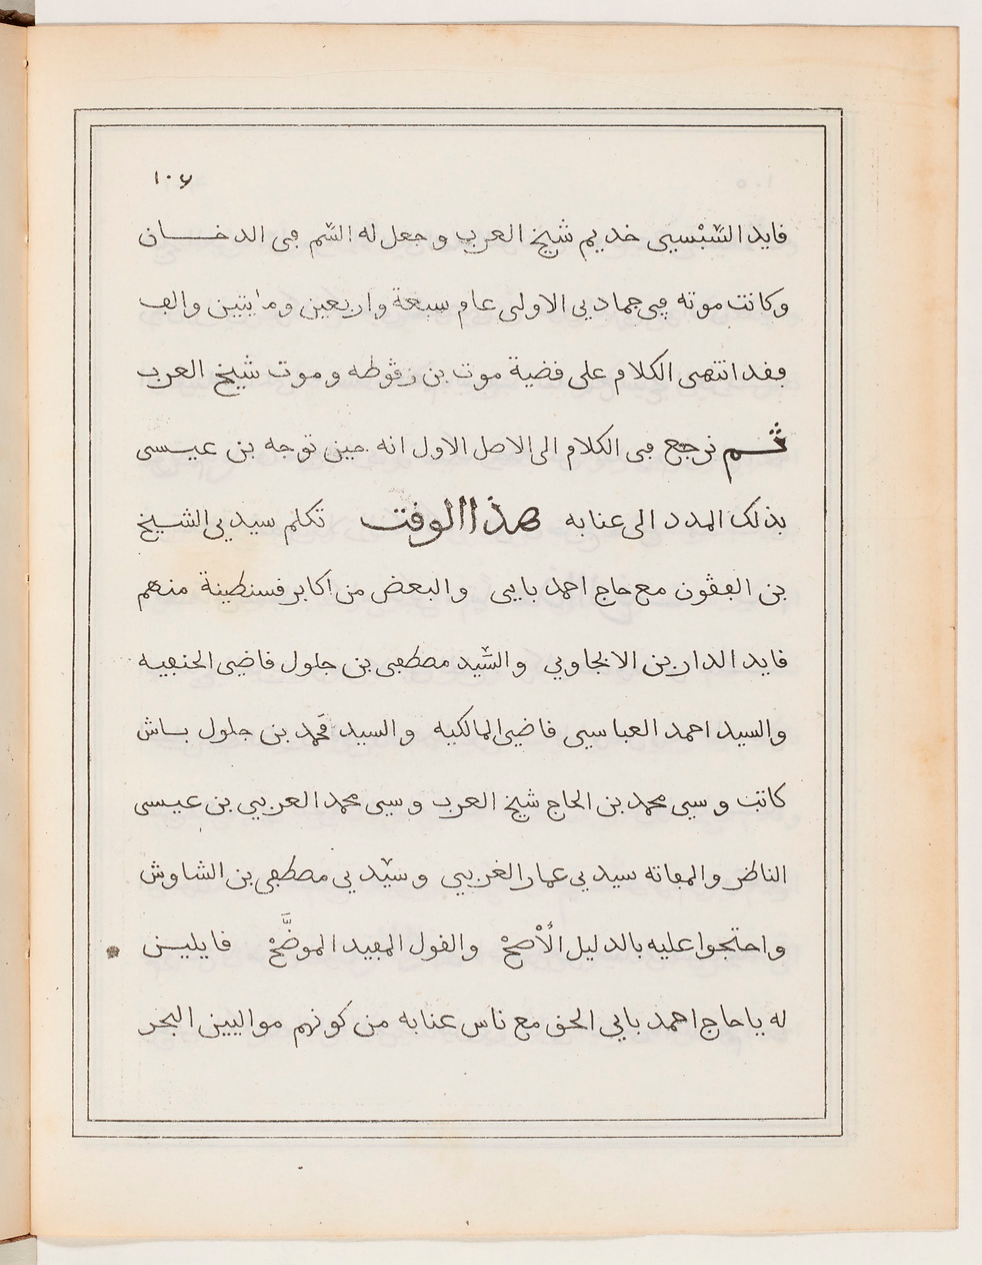 ١٠٦
قايد السّبْسيى خديم شيخ العرب و جعل له السّم في الدخــان
وكانت موته في جمادي الاولى عام سبعة واربعين ومايتين والف
فقد انتهى الكلام على قضية موت بن زڨوطه و موت شيخ العرب
ثــم نرجع في الكلام الى الاصل الاول انه حين توجه بن عيــسى
بذلك المدد الى عنابه هذا الوقت تكلم سيدي الشــيخ
بن الفڨون مع حاج احمد بايى والبعض من اكابر قسنطينة منهم
قايد الدار بن الابجاوي والسّيد مصطفى بن جلول قاضي الحنفيه
والسيد احمد العباسيى قاضي المالكيه والسيد مَحمد بن جلول بــاش
كاتب و سيى محمد بن الحاج شيخ العرب و سيى محمد العربيى بن عيــسى
الناظر والمفاته سيدي عمار الغربيى و سيّدي مصطفى بن الشاوش
واحتجوا عليه بالدليل الْأصحْ والقول المفيد الموضَّحْ قايليــن
له يا حاج احمد بايى الحق مع ناس عنابه من كونهم مواليين البحر